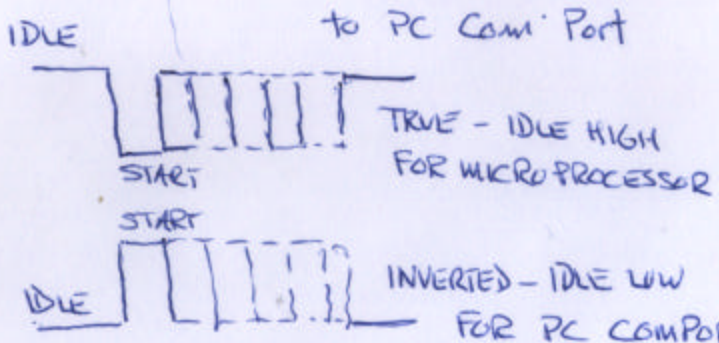 to PC Com Port
IDLE
TRUE - IDLE HIGH
FOR MICROPROCESSOR
START
START
IDLE
INVERTED - IDLE LOW
FOR PC COMPO